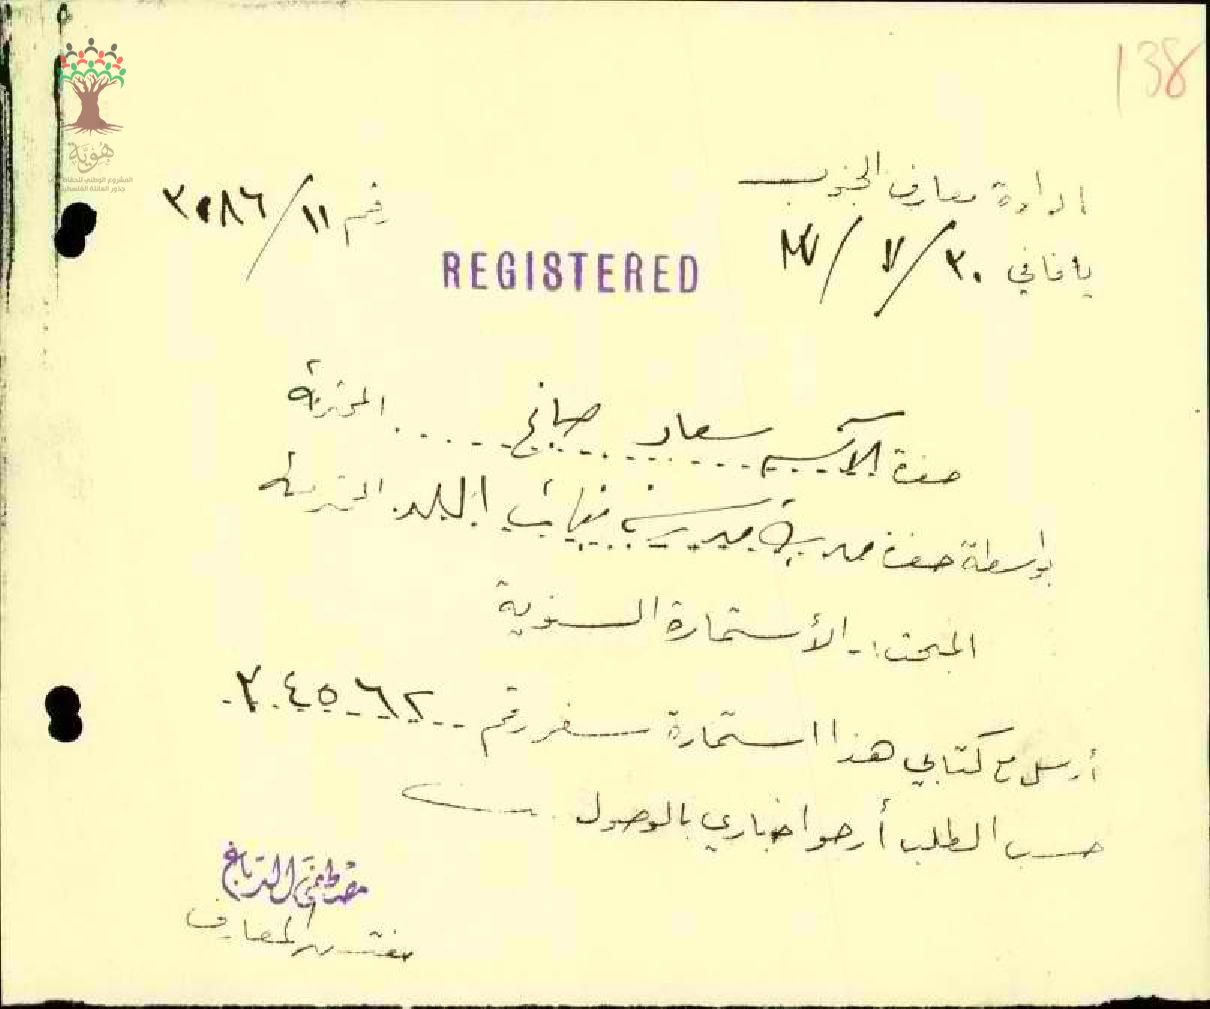 138
ادارة معارف الجنوب
رقم ١١/٢٠٨٦
يافا في ٣٠/٧/٤٧
REGISTERED
حضرة الآنسة سعاد صالح المحترمة
بواسطة حضرة مديرة مدرسة بنات البلد المحترمة
المبحث:- الأستمارة السنوية
أرسل مع كتابي هذا استمارة سفر رقم ٢٠٤٥٦٢
حسب الطلب أرجو اخباري بالوصول
مصطفى الدباغ
مفتش المعارف
هُوِيَّة
المشروع الوطني للحفاظ على
جذور العائلة الفلسطينية